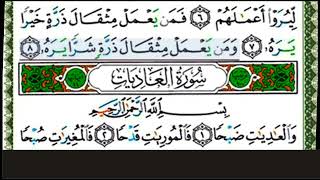 لِيُرَوْا۟ أَعْمَـٰلَهُمْ ٦ فَمَن يَعْمَلْ مِثْقَالَ ذَرَّةٍ خَيْرًا
يَرَهُۥ ٧ وَمَن يَعْمَلْ مِثْقَالَ ذَرَّةٍ شَرًّا يَرَهُۥ ٨
سُورَةُ العَادِيَاتِ
بِسْمِ اللَّهِ الرَّحْمَـٰنِ الرَّحِيمِ
وَالْعَـٰدِيَـٰتِ ضَبْحًا ١ فَالْمُورِيَـٰتِ قَدْحًا ٢ فَالْمُغِيرَٰتِ صُبْحًا